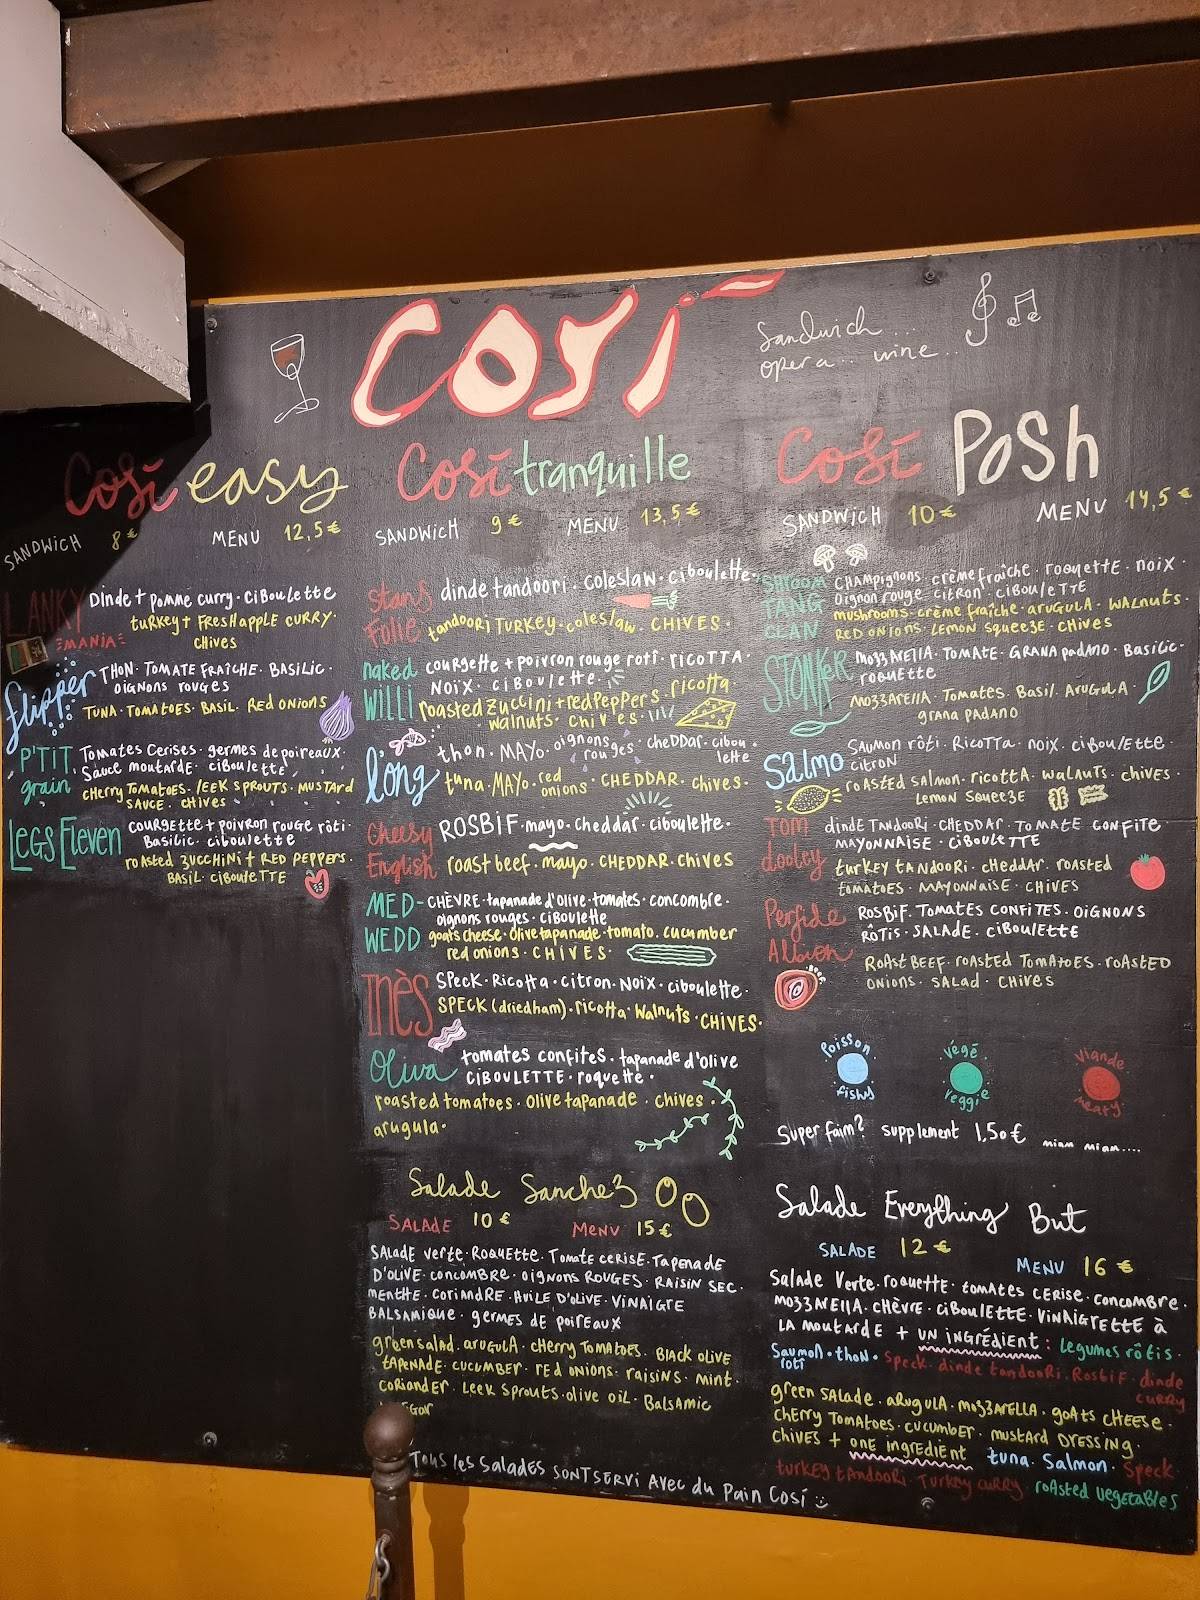 Cosí
Sandwich ...
opera... wine...
Cosí easy
SANDWICH 8€ MENU 12,5€
LANKY
MANIA
Dinde + pomme curry · Ciboulette
turkey + Fresh apple curry ·
chives
flipper
THON · TOMATE FRAÎCHE · BASILIC ·
oignons rouges
TUNA · TOMATOES · BASIL · Red onions
P'TIT
grain
Tomates Cerises · germes de poireaux ·
Sauce moutarde · ciboulette
cherry tomatoes · leek sprouts · mustard
sauce · chives
LEGS Eleven
courgette + poivron rouge rôti ·
Basilic · ciboulette
roasted zucchini + red peppers ·
BASIL · ciboulette
Cosí tranquille
SANDWICH 9€ MENU 13,5€
Stans
Folie
dinde tandoori · coleslaw · ciboulette ·
tandoori Turkey · coleslaw · CHIVES ·
naked
WILLI
courgette + poivron rouge roti · ricotta ·
NOIX · ciboulette ·
roasted zuccini + red peppers · ricotta
walnuts · chives ·
l'ong
thon · MAYO · oignons rouges · cheddar · ciboulette
tuna · MAYO · red onions · CHEDDAR · chives ·
Cheesy
English
ROSBIF · mayo · cheddar · ciboulette ·
roast beef · mayo · CHEDDAR · chives
MED-
WEDD
CHÈVRE · tapanade d'olive · tomates · concombre ·
oignons rouges · ciboulette
goats cheese · olive tapanade · tomato · cucumber
red onions · CHIVES ·
Inès
Speck · Ricotta · citron · Noix · ciboulette ·
SPECK (dried ham) · ricotta · Walnuts · CHIVES ·
Oliva
tomates confites · tapanade d'olive
CIBOULETTE · roquette ·
roasted tomatoes · olive tapanade · chives ·
arugula ·
Salade Sanchez
SALADE 10€ MENU 15€
SALADE verte · ROQUETTE · Tomate cerise · Tapenade
D'OLIVE · concombre · oignons ROUGES · RAISIN SEC ·
menthe · coriandre · Huile d'olive · Vinaigre
BALSAMIQUE · germes de poireaux
green salad · arugula · cherry tomatoes · Black olive
tapenade · cucumber · red onions · raisins · mint ·
coriander · leek sprouts · olive oil · Balsamic
Tous les salades sont servi avec du pain Cosí
Cosí Posh
SANDWICH 10€ MENU 14,5€
SHROOM
TANG
CLAN
CHAMPIGNONS · crème fraîche · roquette · noix ·
oignon rouge · citron · ciboulette
mushrooms · crème fraîche · arugula · walnuts ·
red onions · lemon squeeze · chives
STONKER
MOZZARELLA · TOMATE · GRANA PADANO · Basilic ·
roquette
MOZZARELLA · Tomates · Basil · Arugula ·
grana padano
Salmo
SAUMON rôti · Ricotta · noix · ciboulette ·
citron
roasted salmon · ricotta · walnuts · chives ·
Lemon squeeze
TOM
dooley
dinde TANDOORI · CHEDDAR · TOMATE CONFITE
MAYONNAISE · ciboulette
turkey tandoori · cheddar · roasted
tomatoes · MAYONNAISE · CHIVES
Perfide
Albion
ROSBIF · TOMATES CONFITES · OIGNONS
RÔTIS · SALADE · CIBOULETTE
ROAST BEEF · roasted tomatoes · roasted
onions · salad · chives
Poisson
fishy
végé
veggie
Viande
meaty
Super faim? supplement 1,50€ miam miam....
Salade Everything But
SALADE 12€
MENU 16€
Salade Verte · roquette · tomates cerise · concombre ·
mozzarella · chèvre · ciboulette · vinaigrette à
la moutarde + un ingrédient : legumes rôtis ·
Saumon rôti · thon · speck · dinde tandoori · Rosbif · dinde
curry
green salade · arugula · mozzarella · goats cheese ·
cherry tomatoes · cucumber · mustard dressing ·
chives + one ingredient tuna · salmon · speck
turkey tandoori · Turkey curry · roasted vegetables